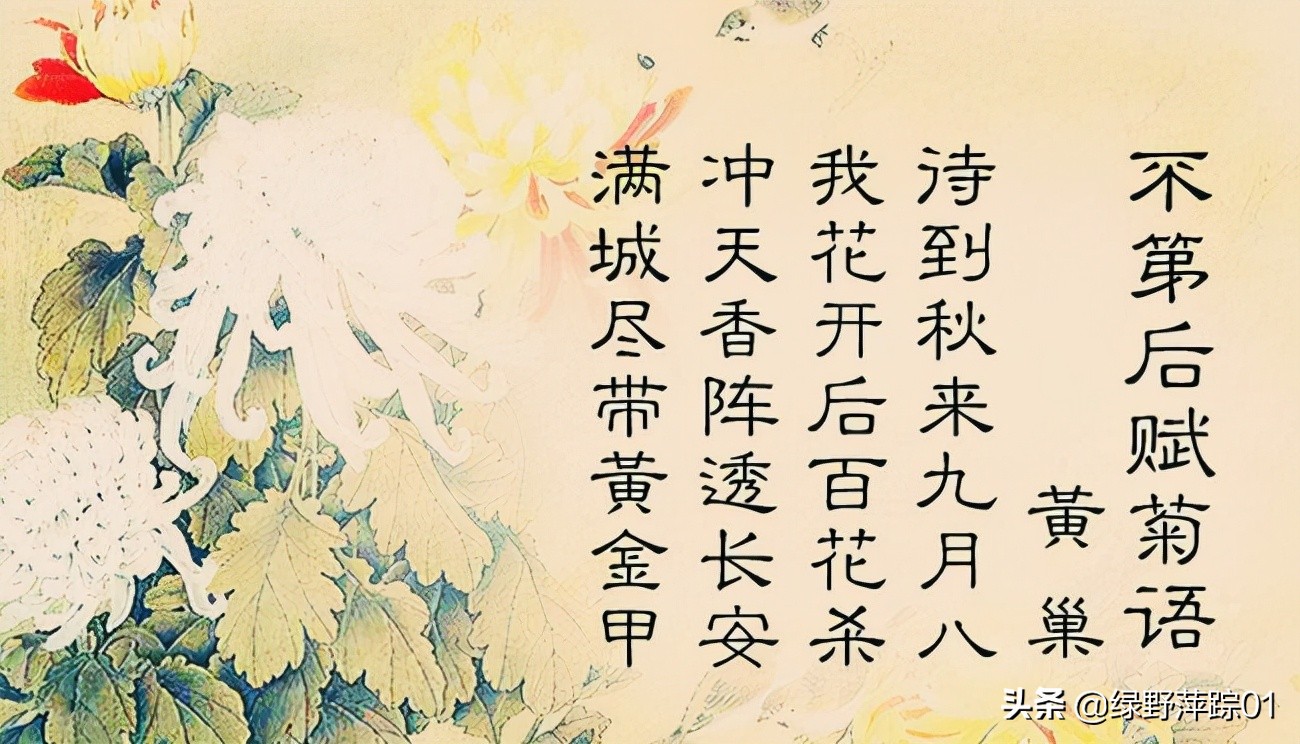 不第后赋菊语
黄巢
待到秋来九月八
我花开后百花杀
冲天香阵透长安
满城尽带黄金甲
头条 @绿野萍踪01